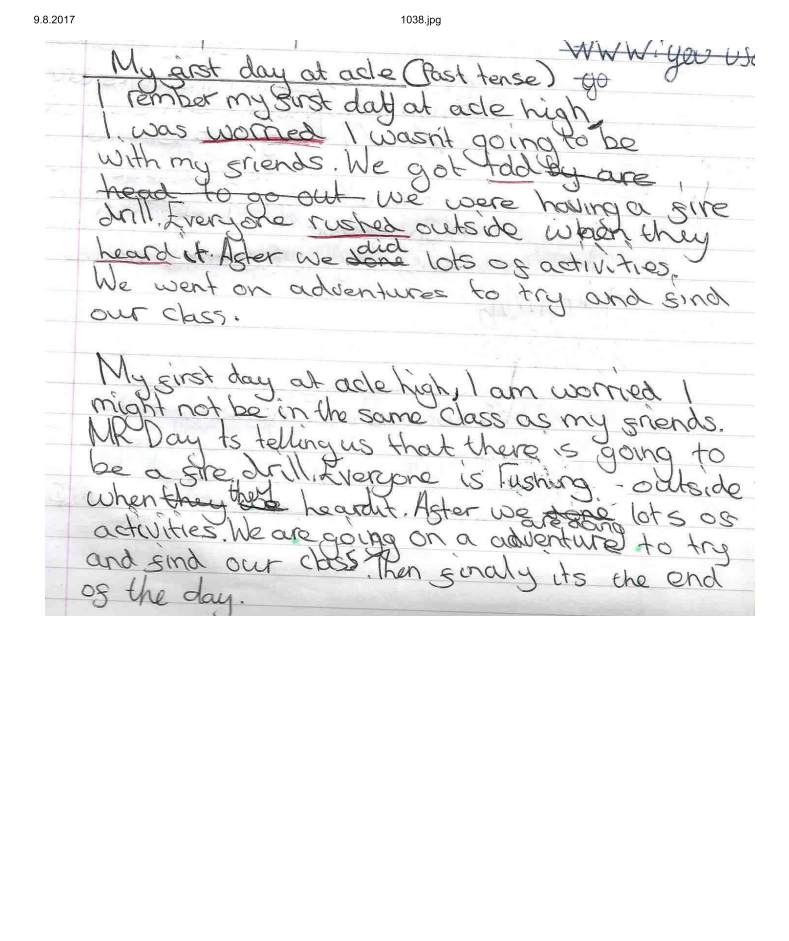 9.8.2017 1038.jpg
WWW: you
My first day at acle (Past tense) go
I rember my first day at acle high,
I was worried I wasn't going to be
with my friends. We got told by are
head to go out we were having a fire
drill. Everyone rushed outside when they
heard it. After we done did lots of activities.
We went on adventures to try and find
our class.
My first day at acle high, I am worried I
might not be in the same class as my friends.
MR Day is telling us that there is going to
be a fire drill. Everyone is rushing outside
when they they heard it. After we done are doing lots of
activities. We are going on a adventure to try
and find our class. Then finaly its the end
of the day.